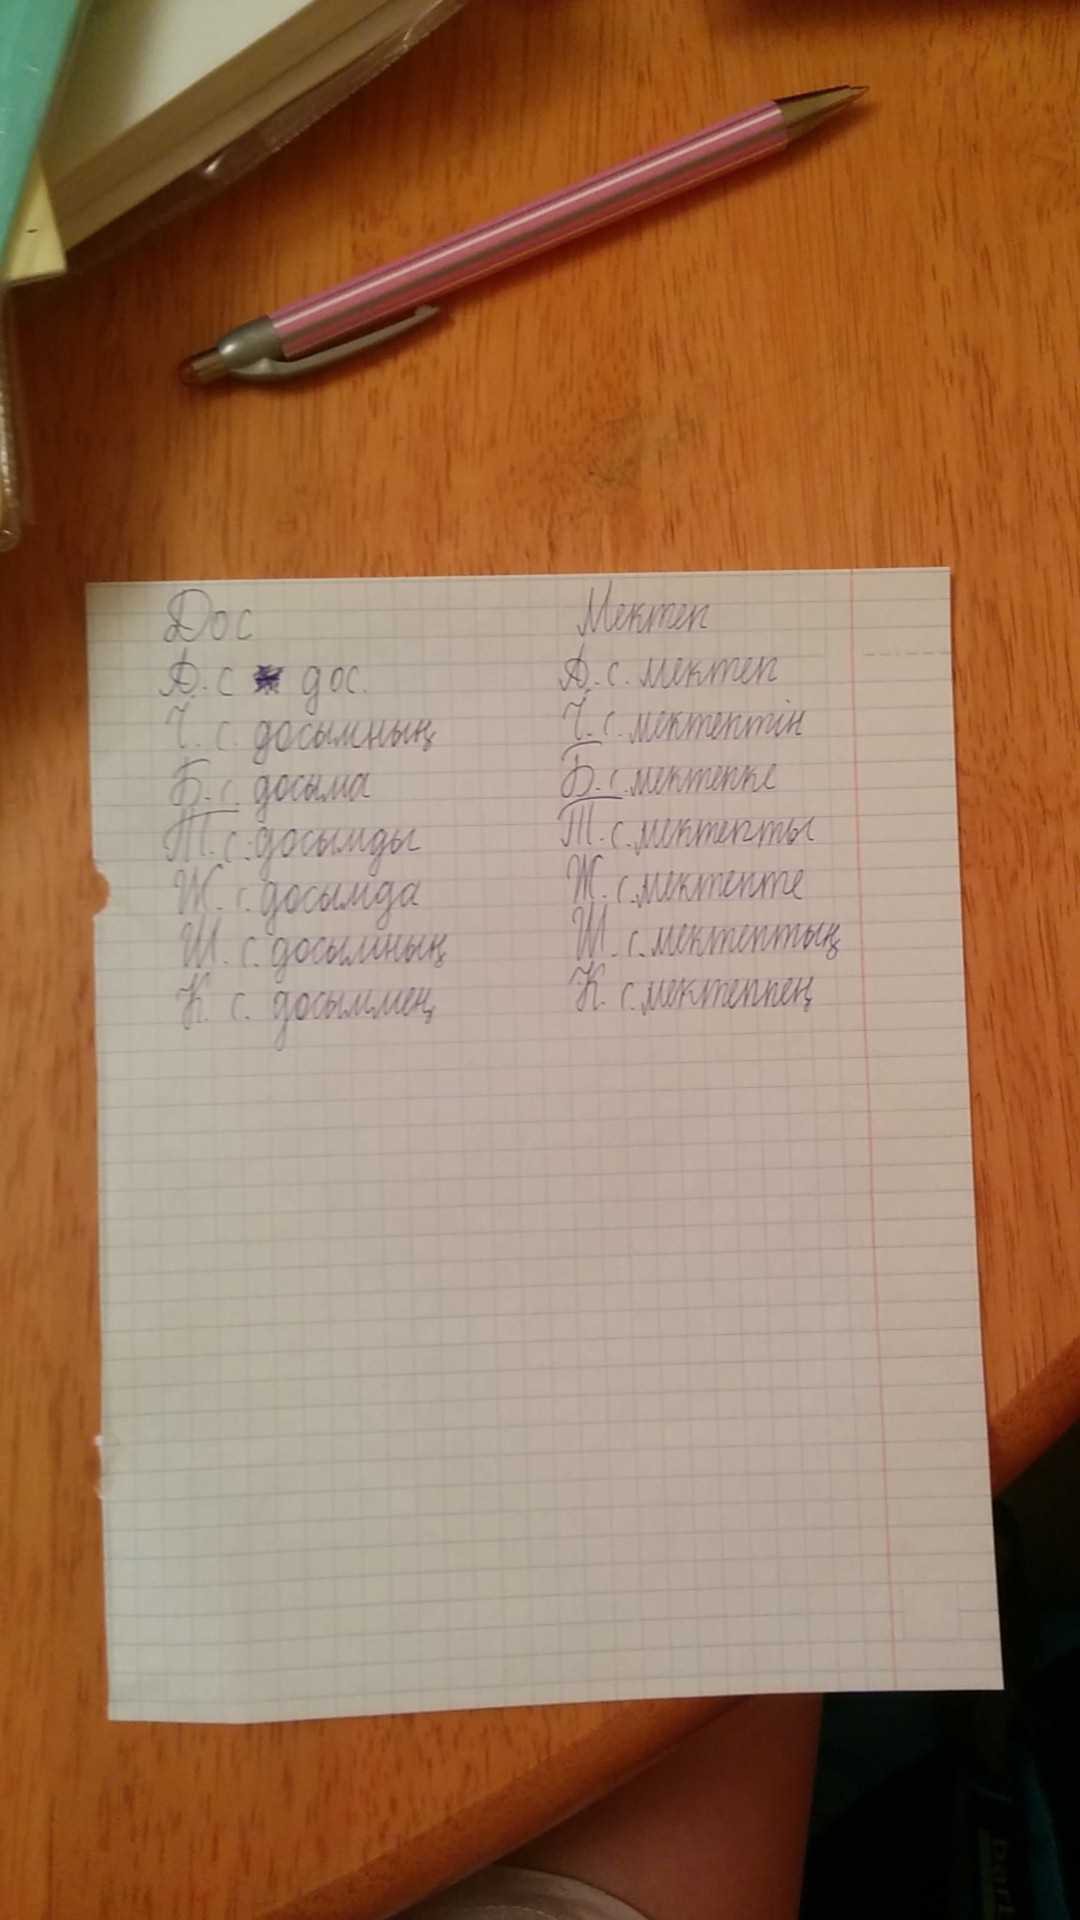 Дос
А. с дос.
Ч. с. досымның
Б. с. досыма
Т. с. досымды
Ж. с. досымда
Ш. с. досымның
К. с. досыммең
Мектеп
А. с. мектеп
Ч. с. мектептін
Б. с. мектепке
Т. с. мектепты
Ж. с. мектепте
Ш. с. мектептың
К. с. мектеппең